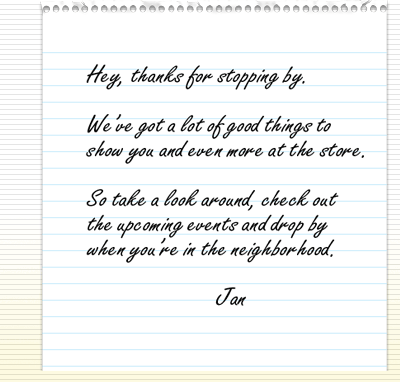 Hey, thanks for stopping by.
We've got a lot of good things to
show you and even more at the store.
So take a look around, check out
the upcoming events and drop by
when you're in the neighborhood.
Jan